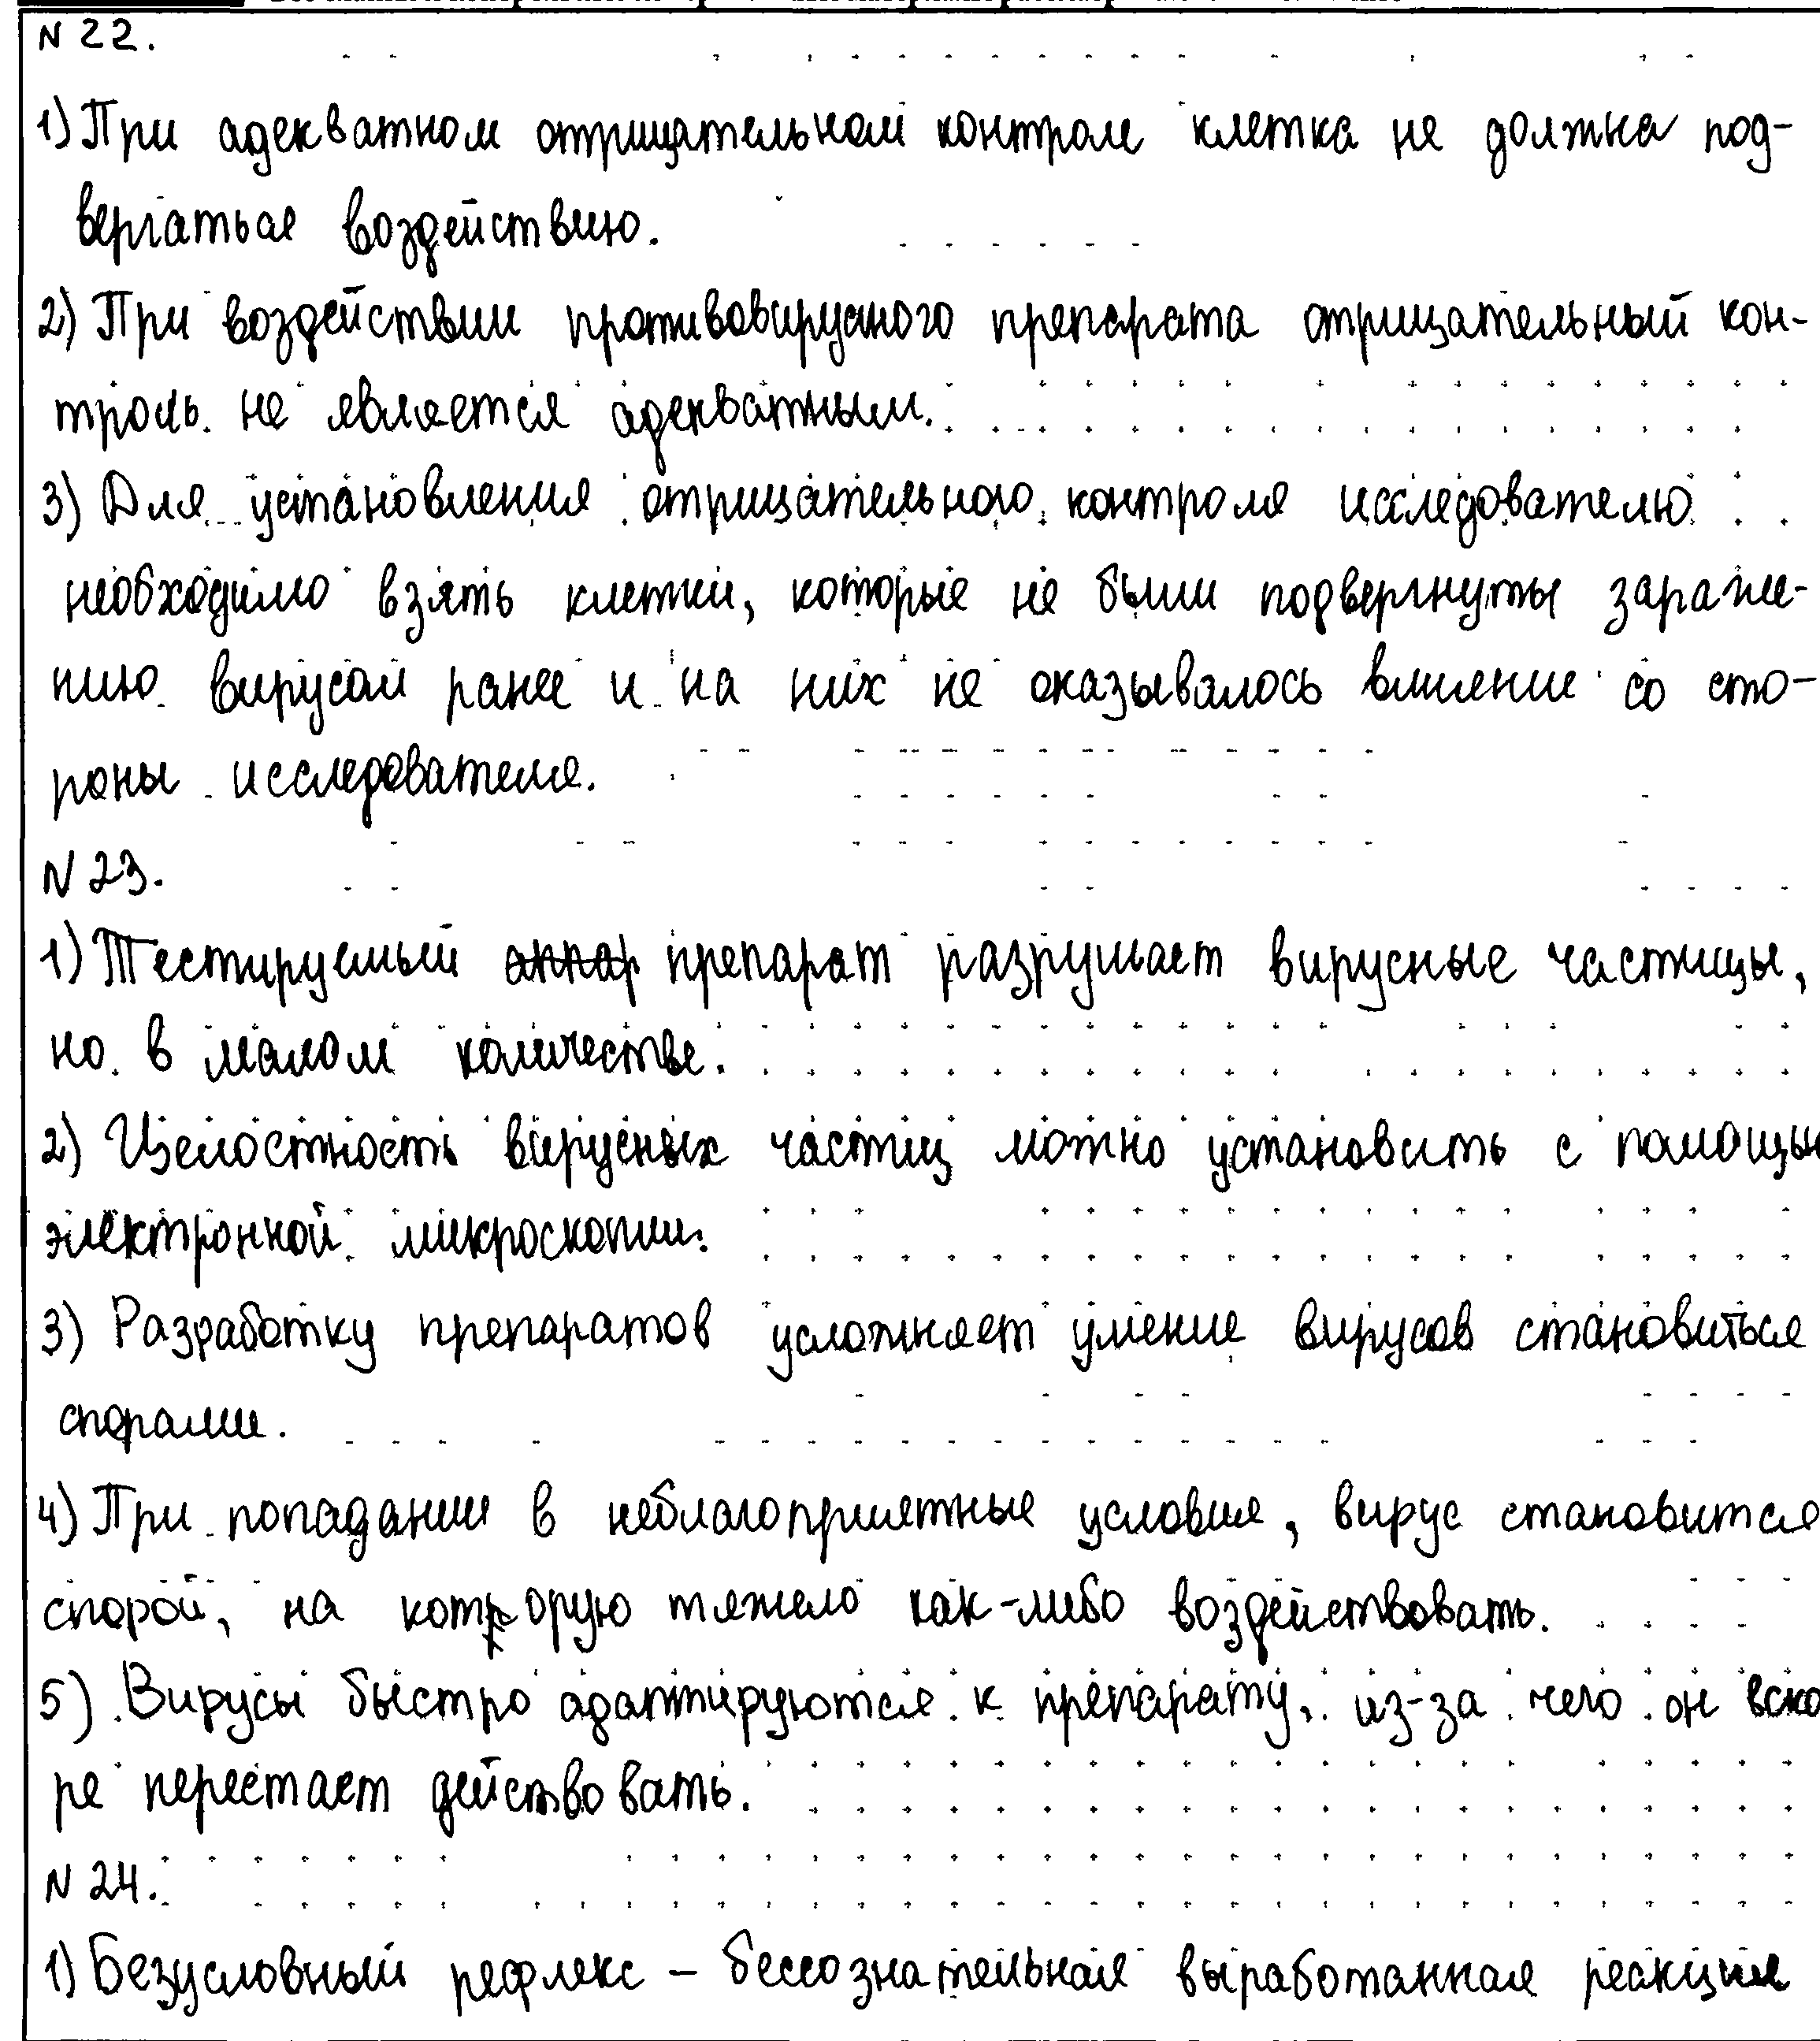 N 22.
1) При адекватном отрицательном контроле клетка не должна под-
вергаться воздействию.
2) При воздействии противовирусного препарата отрицательный кон-
троль не является адекватным.
3) Для установления отрицательного контроля исследователю
необходимо взять клетки, которые не были подвергнуты зараже-
нию вирусом ранее и на них не оказывалось влияние со сто-
роны исследователя.
N 23.
1) Тестируемый препарат разрушает вирусные частицы,
но в малом количестве.
2) Целостность вирусных частиц можно установить с помощью
электронной микроскопии.
3) Разработку препаратов усложняет умение вирусов становиться
спорами.
4) При попадании в неблагоприятные условия, вирус становится
спорой, на которую тяжело как-либо воздействовать.
5) Вирусы быстро адаптируются к препарату, из-за чего он вско
ре перестает действовать.
N 24.
1) Безусловный рефлекс – бессознательная выработанная реакция